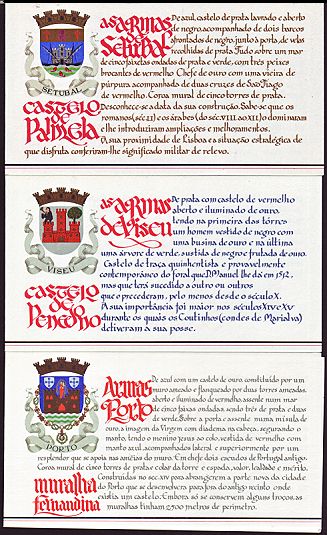 as armas
de
Setubal
De azul, castelo de prata lavrado e aberto
de negro, acompanhado de dois barcos
afrontados de negro, junto à porta, de velas
recolhidas de prata. Tudo sobre um mar
de cinco faixetas ondadas de prata e verde, com três peixes
brocantes de vermelho. Chefe de ouro com uma vieira de
púrpura acompanhada de duas cruzes de São Tiago
de vermelho. Coroa mural de cinco torres de prata.
SETUBAL
CASTELO
de
Palmela
Desconhece-se a data da sua construção. Sabe-se que os
romanos (séc. II) e os árabes (do séc. VIII ao XII) o dominaram
e lhe introduziram ampliações e melhoramentos.
A sua proximidade de Lisboa e situação estratégica de
que disfruta conferiram-lhe significado militar de relevo.
as armas
de Viseu
De prata com castelo de vermelho
aberto e iluminado de ouro,
tendo na primeira das tôrres
um homem vestido de negro com
uma busina de ouro e na última
uma árvore de verde, sustida de negro e frutada de ouro.
VISEU
CASTELO
de
Penedono
Castelo de traça quinhentista e provavelmente
contemporâneo do foral que D. Manuel lhe dá em 1512,
mas que terá sucedido a outro ou outros
que o precederam, pelo menos desde o século X.
A sua importância foi maior nos séculos XIV e XV
durante os quais os Coutinhos (condes de Marialva)
detiveram a sua posse.
Armas
do
Porto
De azul com um castelo de ouro, constituído por um
muro ameado e flanqueado por duas torres ameadas,
aberto e iluminado de vermelho, assente num mar
de cinco faixas ondadas, sendo três de prata e duas
de verde. Sobre a porta e assente numa mísula de
ouro, a imagem da Virgem com diadema na cabeça, segurando o
manto, tendo o menino Jesus ao colo, vestida de vermelho com
manto azul, acompanhados lateral e superiormente por um
resplendor que se apoia nas ameias do muro. Em chefe dois escudos de Portugal antigo.
Coroa mural de cinco torres de prata e colar da torre e espada, valor, lealdade e mérito.
PORTO
muralha
fernandina
Construídas no séc. XIV para abrangerem a parte nova da cidade
do Porto que se desenvolvera para fora do antigo recinto onde
existia um castelo. Embora só se conservem alguns troços, as
muralhas tinham 2500 metros de perímetro.